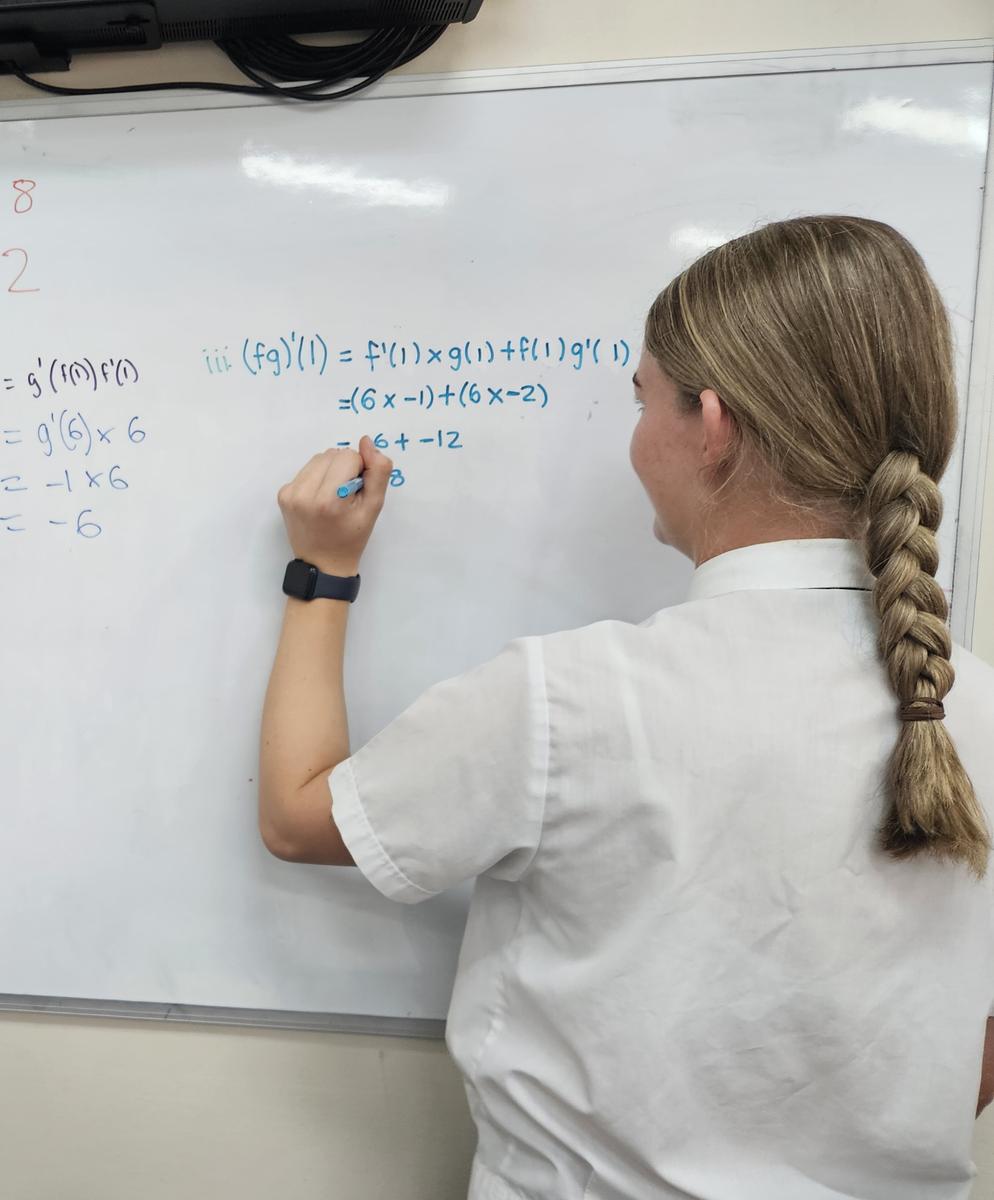 8
2
= g'(f(1))f'(1)
= g'(6)× 6
= -1×6
= -6
iii (fg)'(1) = f'(1)×g(1)+f(1)g'(1)
=(6×-1)+(6×-2)
= 6+ -12
8